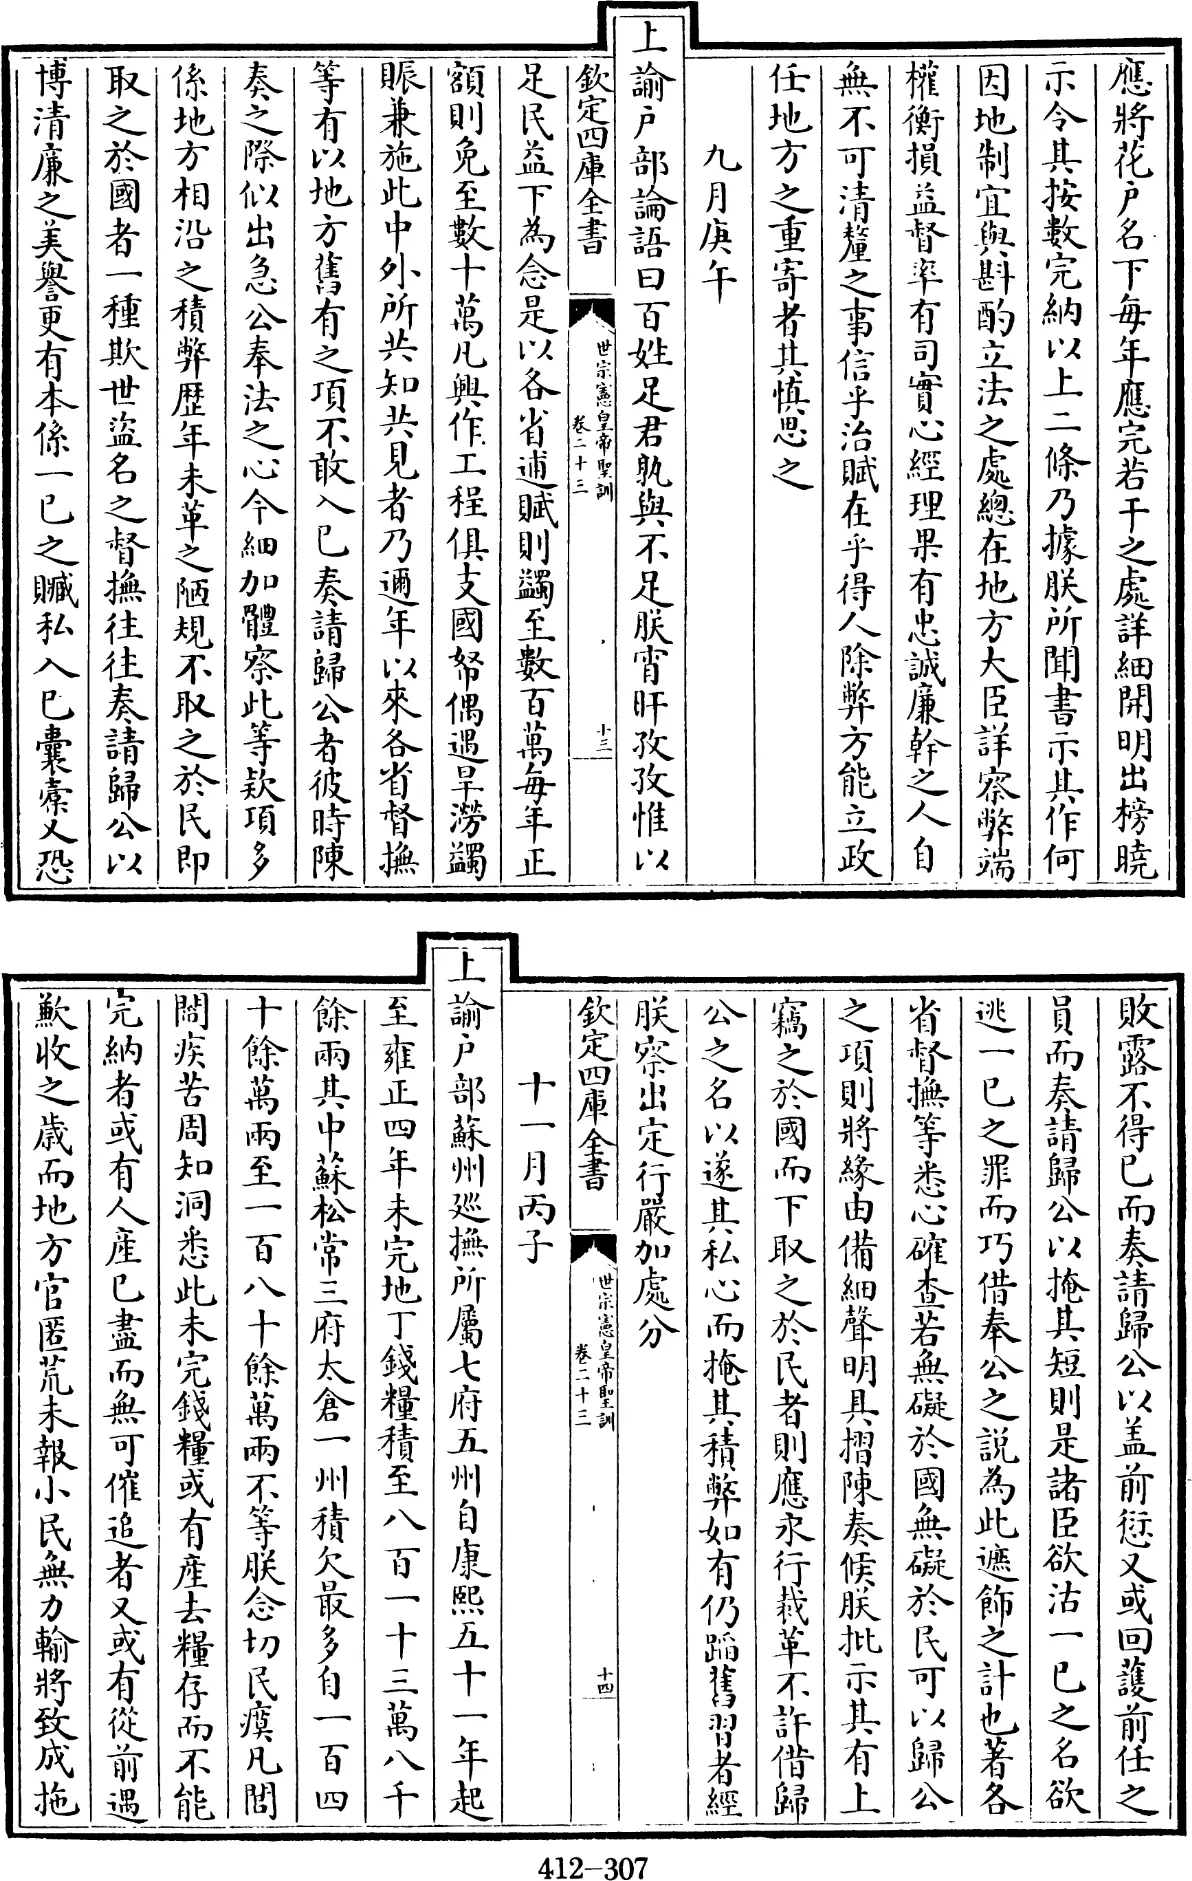 應將花户名下每年應完若干之處詳細開明出榜曉
示令其按數完納以上二條乃據朕所聞書示其作何
因地制宜與斟酌立法之處總在地方大臣詳察弊端
權衡損益督率有司實心經理果有忠誠廉幹之人自
無不可清釐之事信乎治賦在乎得人除弊方能立政
任地方之重寄者其慎思之
九月庚午
上諭户部論語曰百姓足君孰與不足朕宵旰孜孜惟以
欽定四庫全書
世宗憲皇帝聖訓
卷二十三
十三
足民益下為念是以各省逋賦則蠲至數百萬每年正
額則免至數十萬凡興作工程俱支國帑偶遇旱澇蠲
賑兼施此中外所共知共見者乃邇年以來各省督撫
等有以地方舊有之項不敢入已奏請歸公者彼時陳
奏之際似出急公奉法之心今細加體察此等欵項多
係地方相沿之積弊歷年未革之陋規不取之於民即
取之於國者一種欺世盜名之督撫往往奏請歸公以
博清廉之美譽更有本係一已之贓私入已囊橐又恐
敗露不得已而奏請歸公以盖前愆又或回護前任之
員而奏請歸公以掩其短則是諸臣欲沽一已之名欲
逃一已之罪而巧借奉公之説為此遮飾之計也著各
省督撫等悉心確查若無礙於國無礙於民可以歸公
之項則將緣由備細聲明具摺陳奏候朕批示其有上
竊之於國而下取之於民者則應永行裁革不許借歸
公之名以遂其私心而掩其積弊如有仍蹈舊習者經
朕察出定行嚴加處分
欽定四庫全書
世宗憲皇帝聖訓
卷二十三
十四
十一月丙子
上諭户部蘇州廵撫所屬七府五州自康熙五十一年起
至雍正四年未完地丁錢糧積至八百一十三萬八千
餘兩其中蘇松常三府太倉一州積欠最多自一百四
十餘萬兩至一百八十餘萬兩不等朕念切民瘼凡閭
閻疾苦周知洞悉此未完錢糧或有產去糧存而不能
完納者或有人產已盡而無可催追者又或有從前遇
歉收之歲而地方官匿荒未報小民無力輸將致成拖
412-307